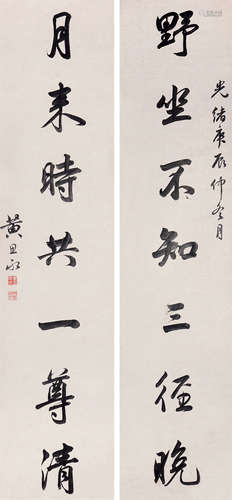 光緒庚辰仲冬月
野坐不知三徑晚
月來時共一尊清
黄思永